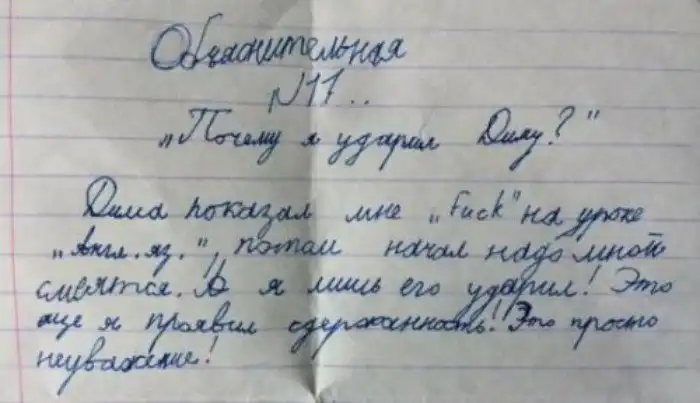 Объяснительная
N17..
"Почему я ударил Диму?"
Дима показал мне "Fuck" на уроке
"Англ. яз.", потом начал надо мной
смеятся. А я лишь его ударил! Это
още я проявил сдержанность! Это просто
неуважение!